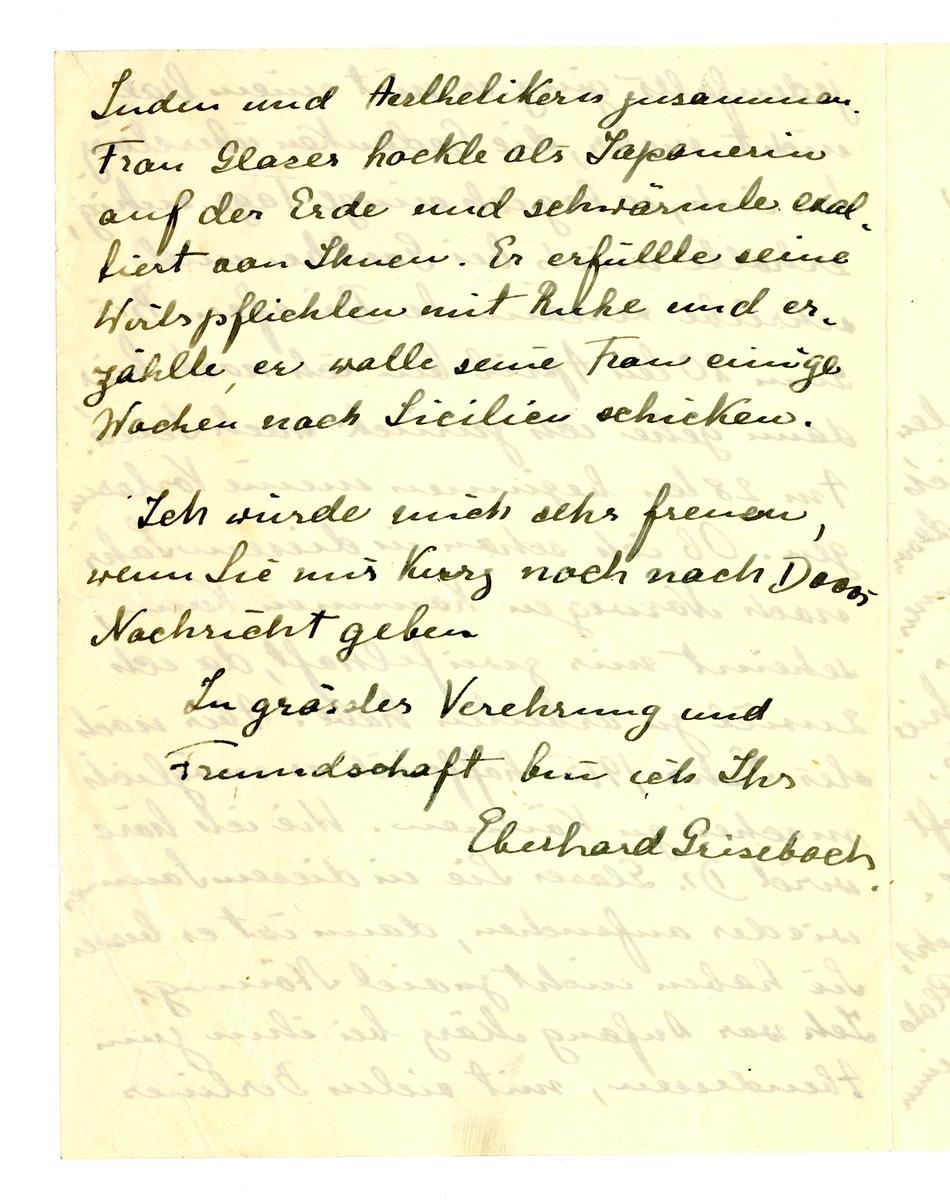 Juden und Aesthetikern zusammen.
Frau Glaser hockte als Japanerin
auf der Erde und schwärmte exal-
tiert von Ihnen. Er erfüllte seine
Wirtspflichten mit Ruhe und er-
zählte, er wolle seine Frau einige
Wochen nach Sicilien schicken.
Ich würde mich sehr freuen,
wenn Sie mir kurz noch nach Davos
Nachricht geben
In grösster Verehrung und
Freundschaft bin ich Ihr
Eberhard Grisebach.